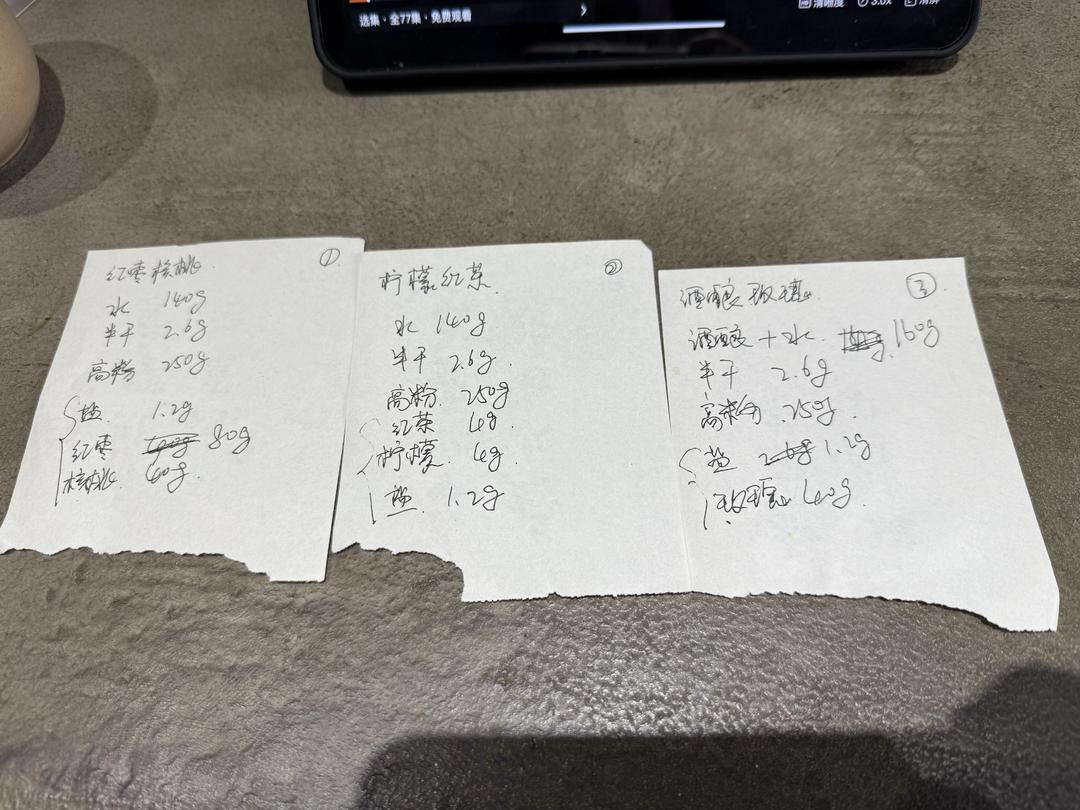 选集·全77集·免费观看
清晰度
3.0x
清屏
①
红枣核桃
水 140g
半干 2.6g
高粉 250g
盐 1.2g
红枣 80g
核桃 60g
②
柠檬红茶
水 140g
半干 2.6g
高粉 250g
红茶 4g
柠檬 4g
盐 1.2g
③
酒酿玫瑰
酒酿+水 160g
半干 2.6g
高粉 250g
盐 1.2g
玫瑰 40g